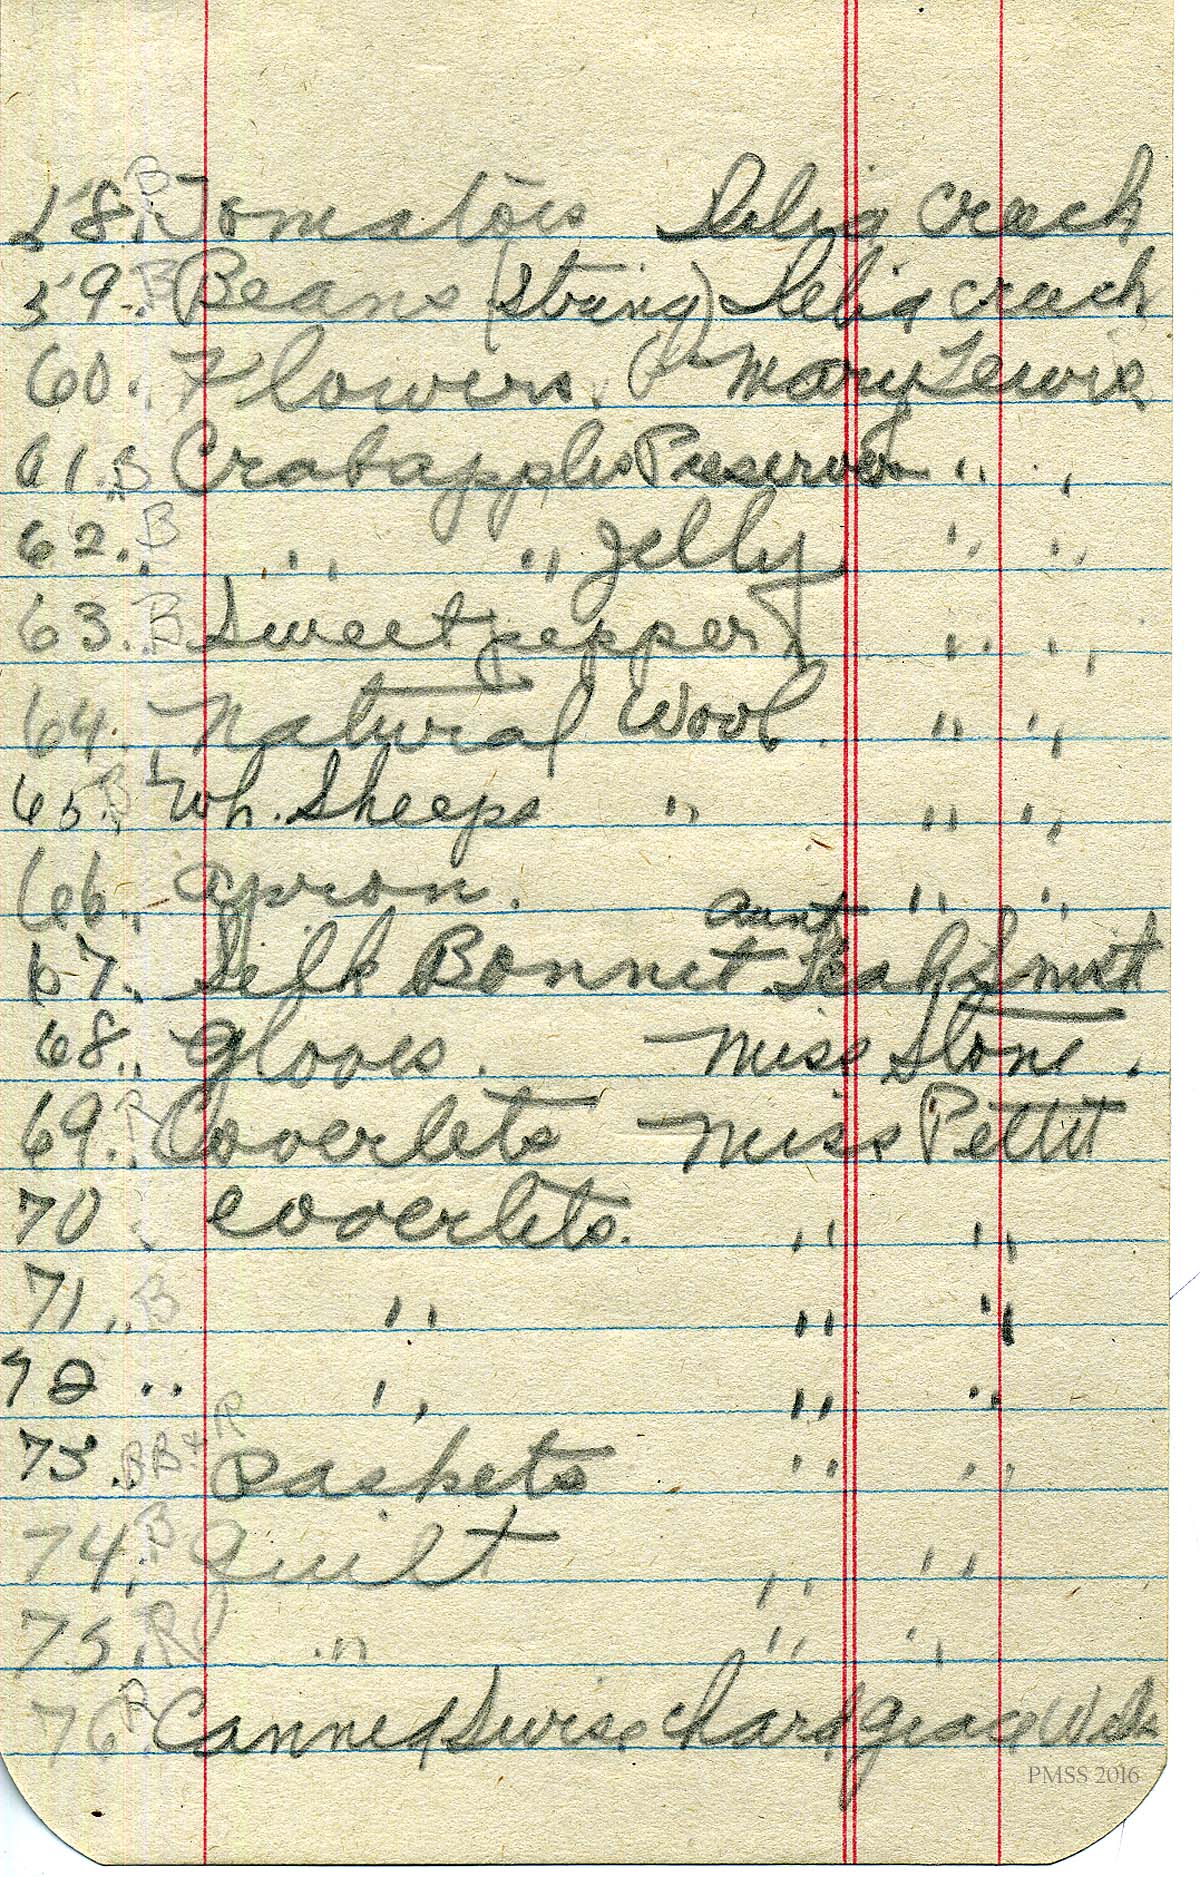 58. B Tomatoes Delia Creech
59. B Beans (String) Delia Creech
60. Flowers. Mary Lewis
61. B Crabapples Preserves " "
62. B " " Jelly " "
63. B Sweet pepper " "
64. Natural Wool. " "
65. B Wh. Sheeps " " "
66. Apron. " "
67. Silk Bonnet Aunt Leah Smith
68. Gloves. Miss Stone.
69. B Coverlets Miss Pettit
70 Coverlets. " "
71 B " " "
72 " " " "
73 B B + R Baskets " "
74. B Quilt " "
75. R " " "
76 B Canned Swiss Chard Grace Wells
PMSS 2016